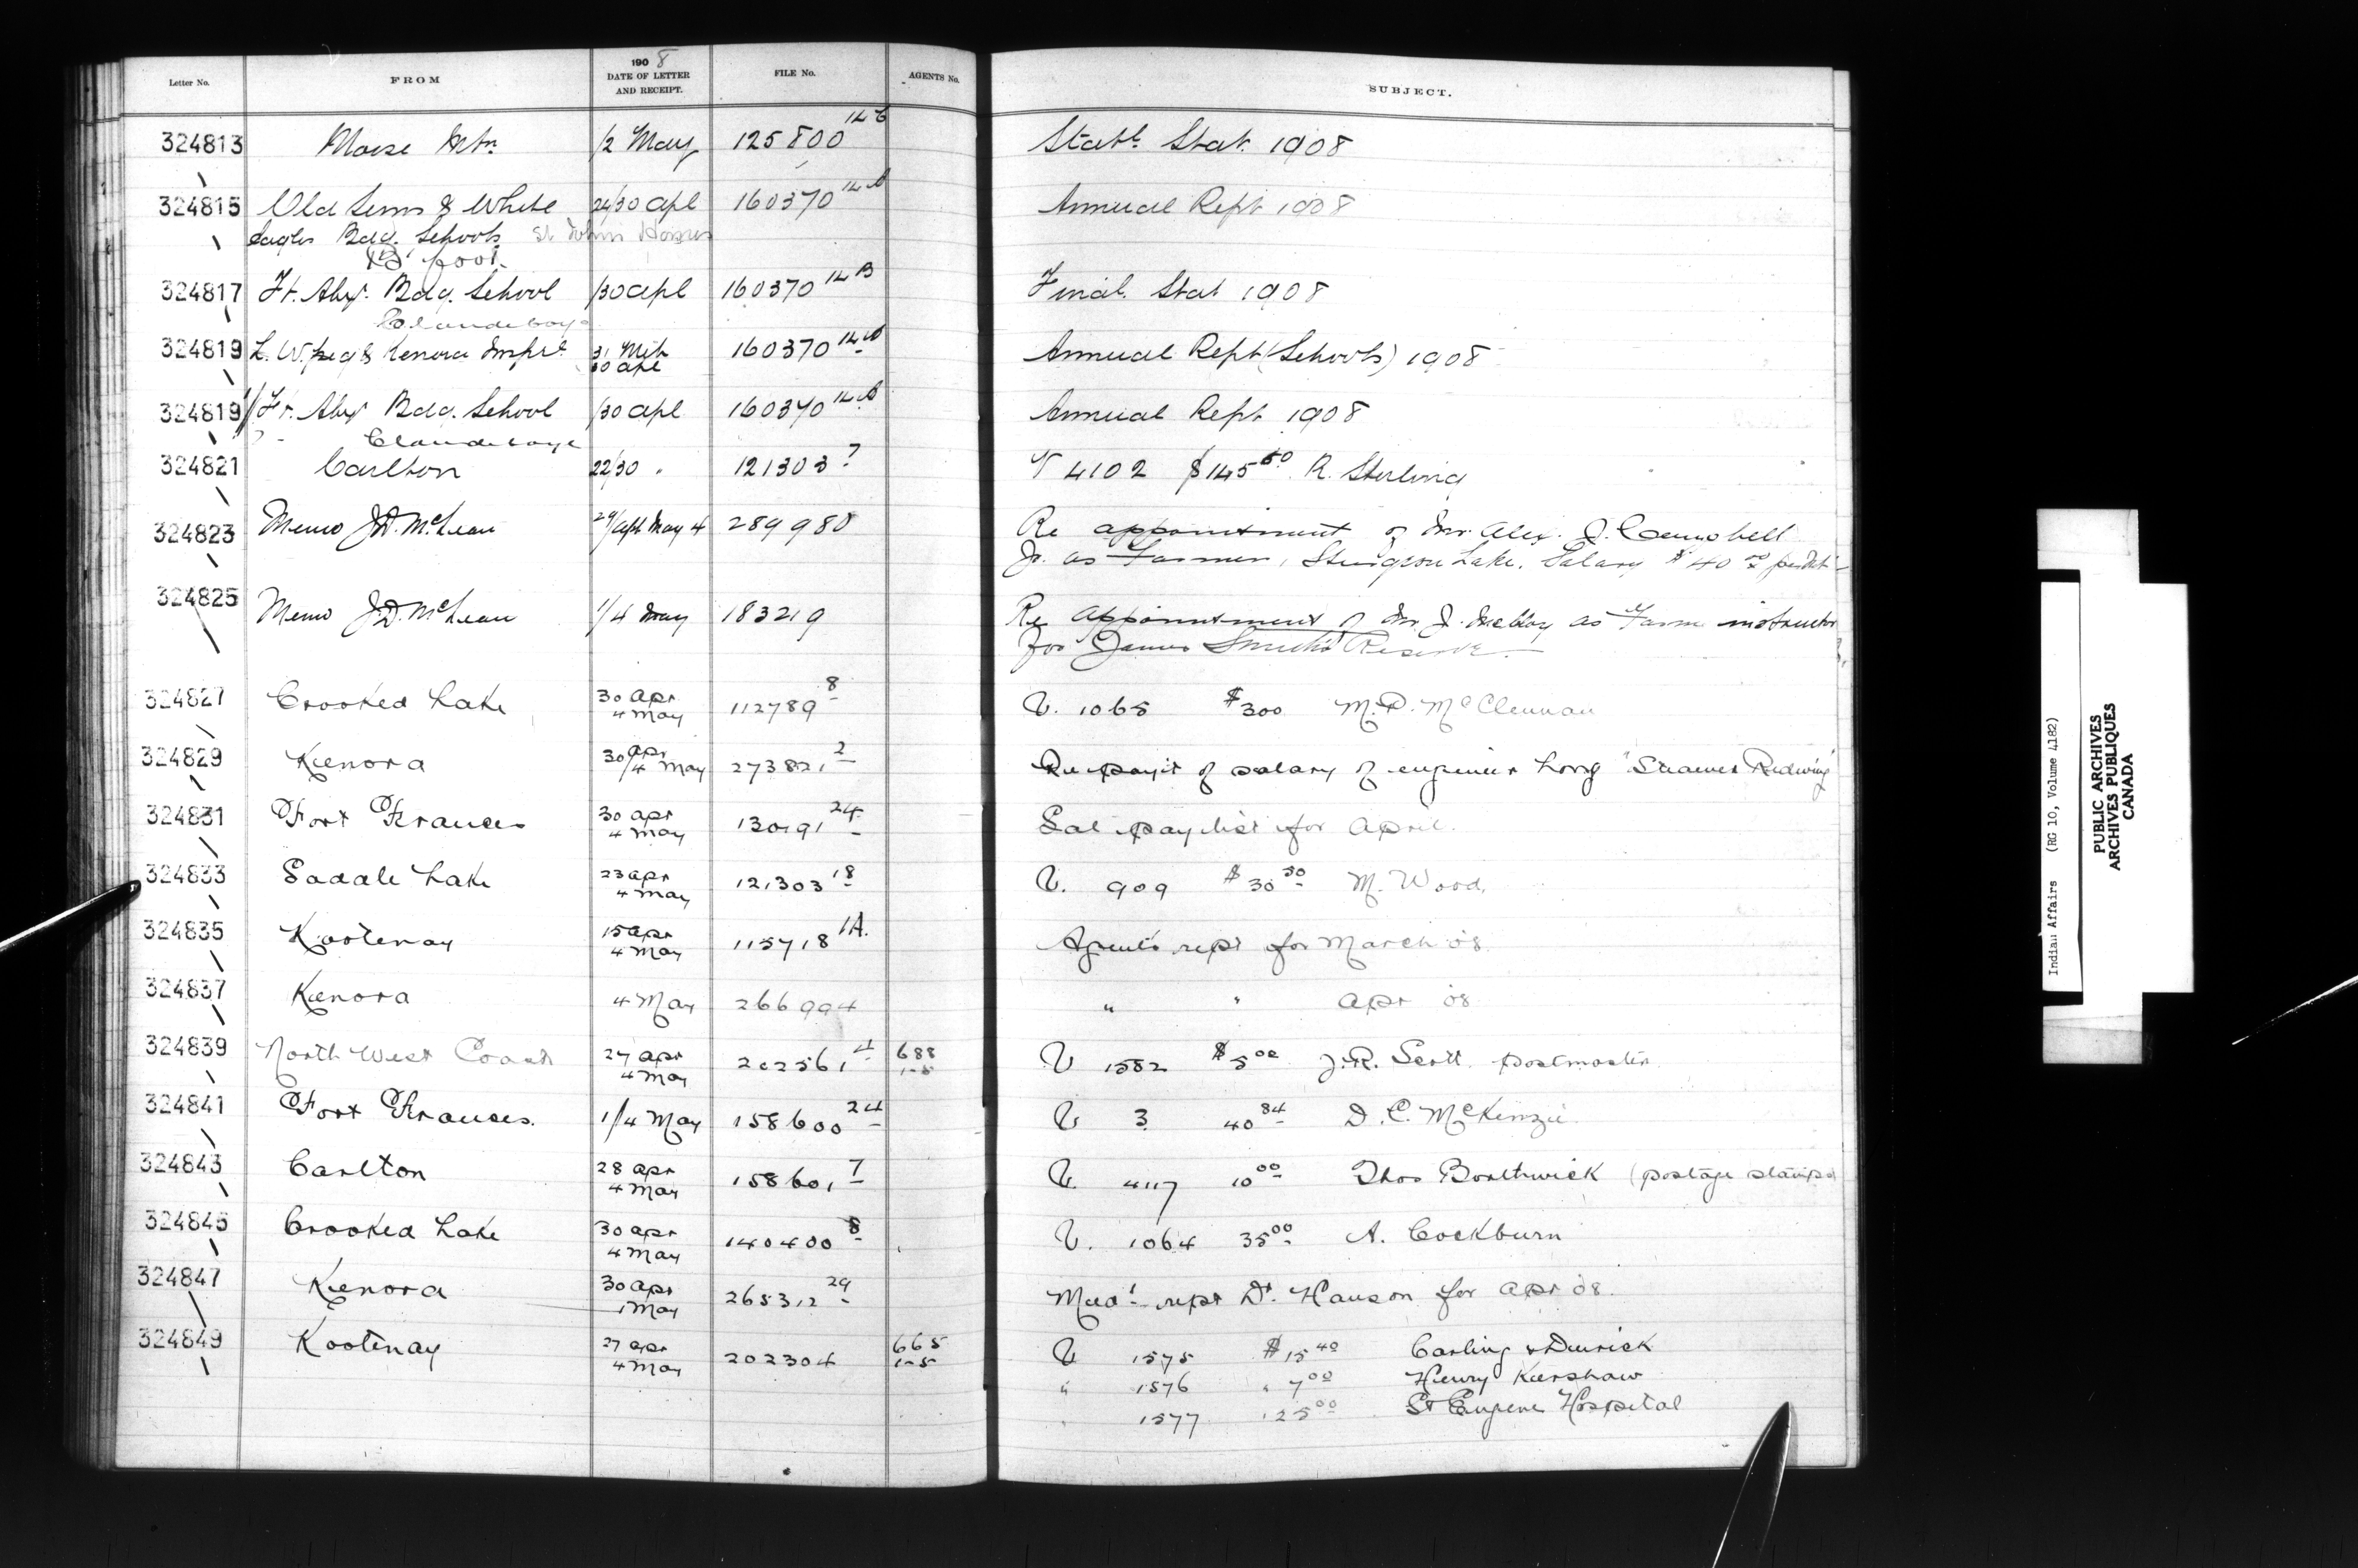 Letter No. FROM 1908 DATE OF LETTER AND RECEIPT. FILE No. AGENTS No. SUBJECT.
324813 Moose Mtn /2 May 125800 Stat. 1908
324815 Old Suns & White 24/30 apl 160370 Annual Rept 1908
Eagles Bdg. Schools St Johns Homes
foot
324817 Ft. Alex. Bdg. School /30 apl 160370 14B Final. Stat 1908
Clandeboye
324819 L. W'peg & Kenora 31 Mch 30 apl 160370 Annual Rept (Schools) 1908
324819 Ft. Alex Bdg. School /30 apl 160370 Annual Rept 1908
Clandeboye
324821 Carlton 22/30 " 121303 7 V 4102 $145 50 R. Sterling
324823 Memo J.D. McLean 29/apl May 4 289980 Re appointment of Mr. Alex. J. Campbell
Jr. as Farmer, Sturgeon Lake. Salary $40 00
324825 Memo J.D. McLean 1/4 May 183219 Re appointment of Mr. J. as Farm instructor
for James Smith's Reserve
324827 Crooked Lake 30 apr 4 May 112789 8 V. 1065 $300 M.D. McClennan
324829 Kenora 30 apr/4 May 273821 2 Re payt of salary of engineer Long "Steamer Redwing"
324831 Fort Frances 30 apr 4 May 130191 24 Sal paylist for April.
324833 Saddle Lake 23 apr 4 May 121303 18 V. 909 $30 50 M. Wood.
324835 Kootenay 15 apr 4 May 115718 1A. Agents rept for March '08
324837 Kenora 4 May 266994 " " Apr '08
324839 North West Coast 27 apr 4 May 202561 4 688 1-5 V 1582 $5 00 J.R. Scott. postmaster
324841 Fort Frances. 1/4 May 158600 24 V. 3 40 84 D.C. McKenzie
324843 Carlton 28 apr 4 May 158601 7 V. 4117 10 00 Thos Borthwick (postage stamps)
324845 Crooked Lake 30 apr 4 May 140400 8 V. 1064 35 00 A. Cockburn
324847 Kenora 30 apr 1 May 265312 29 Med'l rept Dr. Hanson for apr '08.
324849 Kootenay 27 apr 4 May 202304 665 1-5 V 1575 $15 40 Carling &
" 1576 " 7 00 Henry Kershaw
" 1577 125 00 St Eugene Hospital
Indian Affairs (RG 10, Volume 4182)
PUBLIC ARCHIVES
ARCHIVES PUBLIQUES
CANADA